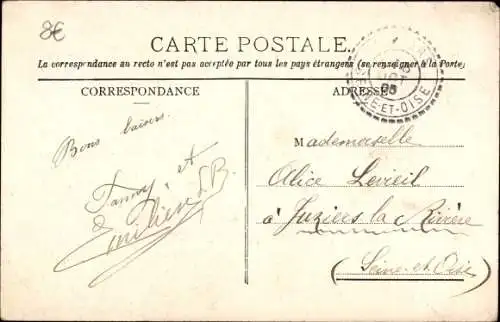 8€
CARTE POSTALE.
La correspondance au recto n'est pas acceptée par tous les pays étrangers (se renseigner à la Poste)
CORRESPONDANCE
ADRESSE
05
SEINE-ET-OISE
Bons baisers.
Fanny et
Mademoiselle
Alice
à Juziers la Rivière
(Seine-et-Oise)